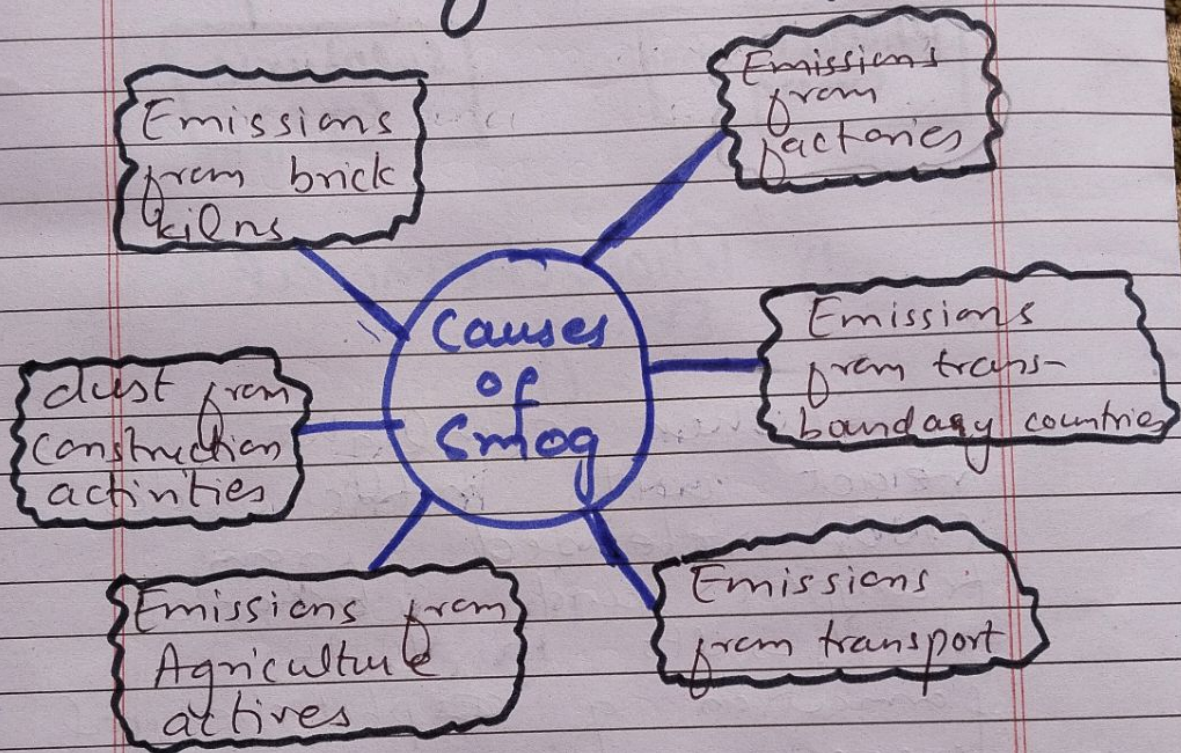 Emissions
from brick
kilns
Emission's
from
factories
Causes
of
Smog
Emissions
from trans-
boundary countries
dust from
construction
activities
Emissions from
Agriculture
actives
Emissions
from transport